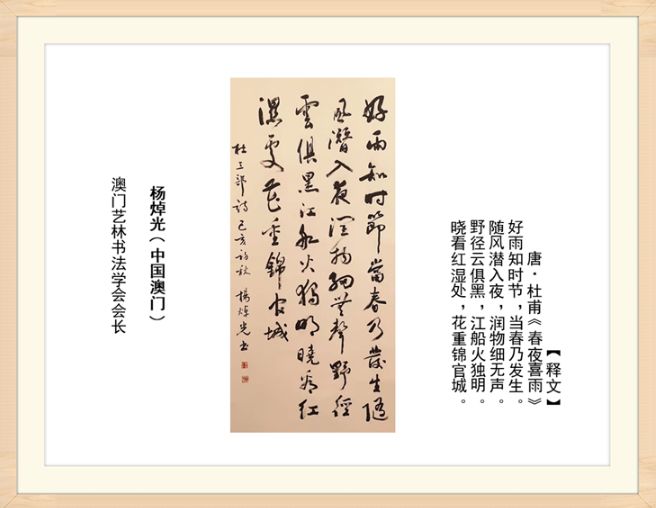 【释文】
唐·杜甫《春夜喜雨》
好雨知时节，当春乃发生。
随风潜入夜，润物细无声。
野径云俱黑，江船火独明。
晓看红湿处，花重锦官城。
好雨知时節當春乃發生隨
風潛入夜潤物細無聲野徑
雲俱黑江船火獨明曉看紅
濕處花重錦官城
杜工部詩己亥初秋楊焯光書
杨焯光（中国澳门）
澳门艺林书法学会会长